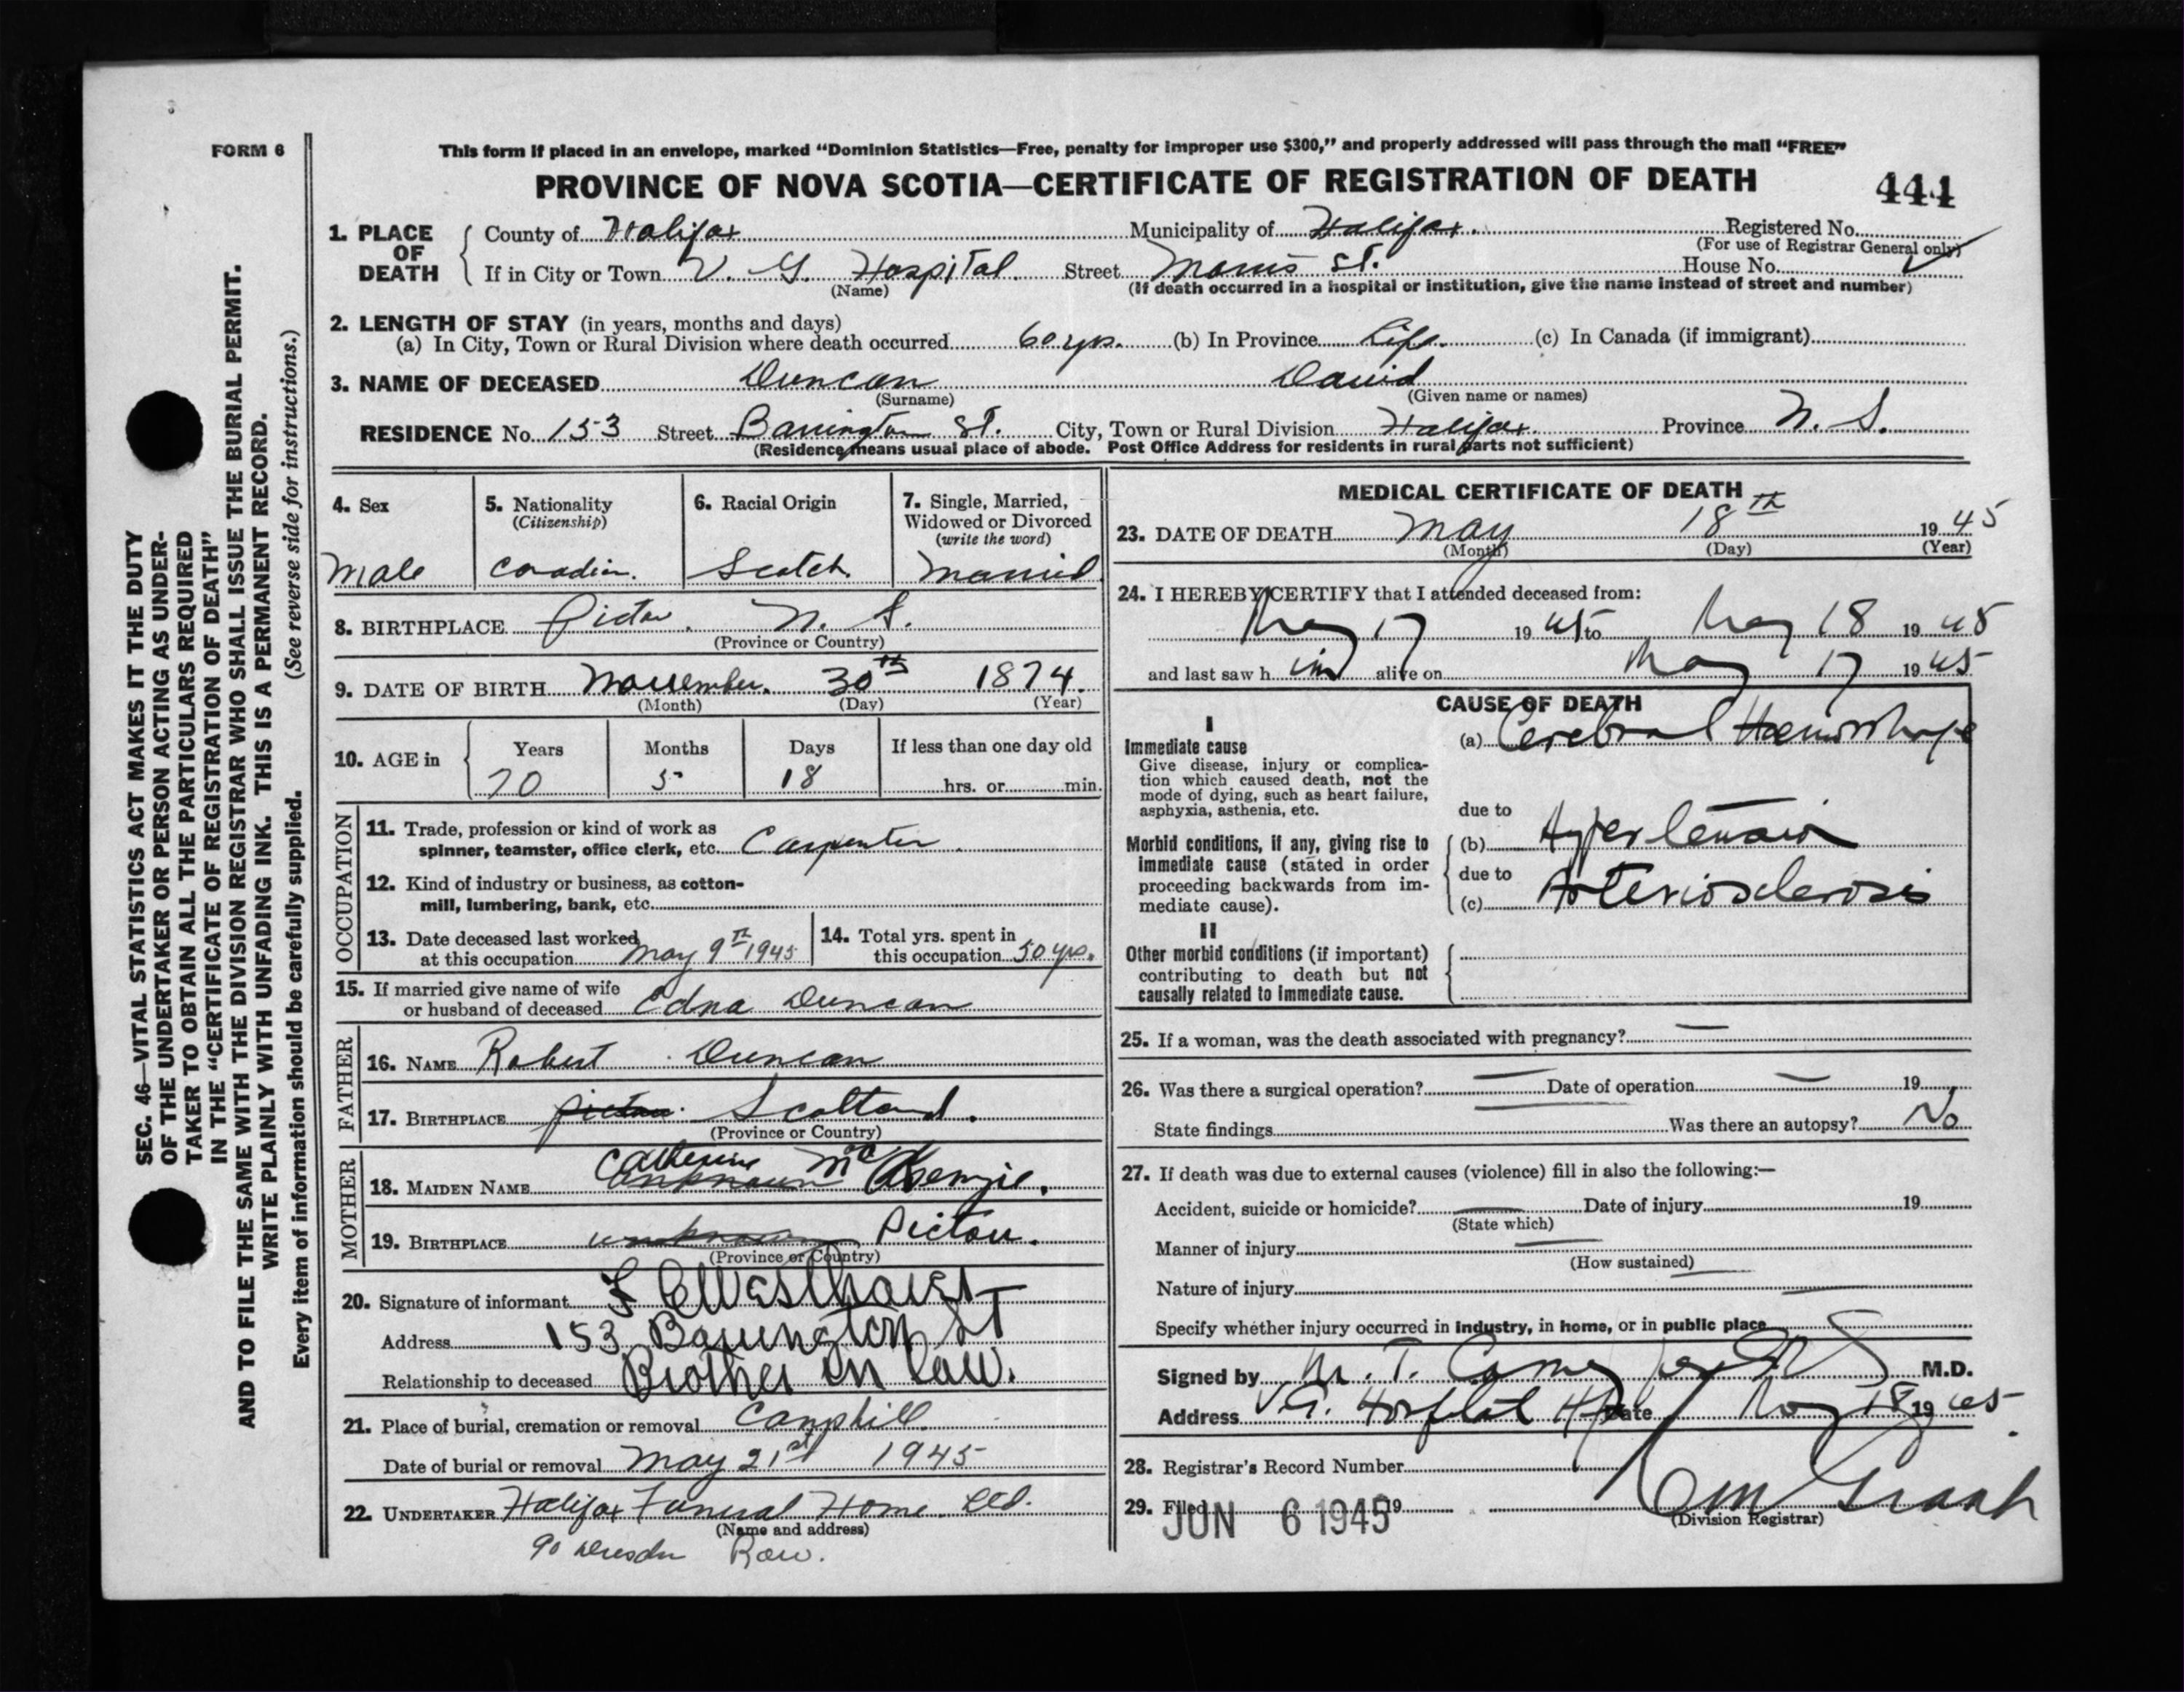 FORM 6
This form if placed in an envelope, marked "Dominion Statistics—Free, penalty for improper use $300," and properly addressed will pass through the mail "FREE"
PROVINCE OF NOVA SCOTIA—CERTIFICATE OF REGISTRATION OF DEATH
444
1. PLACE OF DEATH
County of Halifax Municipality of Halifax. Registered No.
(For use of Registrar General only)
If in City or Town V. G. Hospital. Street Morris St. House No.
(Name) (If death occurred in a hospital or institution, give the name instead of street and number)
2. LENGTH OF STAY (in years, months and days)
(a) In City, Town or Rural Division where death occurred 60 yrs. (b) In Province Life. (c) In Canada (if immigrant)
3. NAME OF DECEASED Duncan David
(Surname) (Given name or names)
RESIDENCE No. 153 Street Barrington St. City, Town or Rural Division Halifax Province N. S.
(Residence means usual place of abode. Post Office Address for residents in rural parts not sufficient)
4. Sex
Male
5. Nationality
(Citizenship)
Canadian.
6. Racial Origin
Scotch
7. Single, Married,
Widowed or Divorced
(write the word)
Married
8. BIRTHPLACE Pictou. N. S.
(Province or Country)
9. DATE OF BIRTH November. 30th 1874.
(Month) (Day) (Year)
10. AGE in
Years Months Days If less than one day old
70 5 18 hrs. or min.
OCCUPATION
11. Trade, profession or kind of work as
spinner, teamster, office clerk, etc. Carpenter.
12. Kind of industry or business, as cotton-
mill, lumbering, bank, etc.
13. Date deceased last worked
at this occupation May 9th 1945
14. Total yrs. spent in
this occupation 50 yrs.
15. If married give name of wife
or husband of deceased Edna Duncan
FATHER
16. NAME Robert Duncan
17. BIRTHPLACE Pictou. Scotland.
(Province or Country)
MOTHER
18. MAIDEN NAME unknown Catherine McKenzie.
19. BIRTHPLACE unknown Pictou.
(Province or Country)
20. Signature of informant
Address 153 Barrington ST
Relationship to deceased Brother in law.
21. Place of burial, cremation or removal Camphill.
Date of burial or removal May 21st 1945
22. UNDERTAKER Halifax Funeral Home. Ltd.
(Name and address)
90 Dresden Row.
MEDICAL CERTIFICATE OF DEATH
23. DATE OF DEATH May 18th 1945
(Month) (Day) (Year)
24. I HEREBY CERTIFY that I attended deceased from:
May 17 1945 to May 18 1945
and last saw him alive on May 17 1945
CAUSE OF DEATH
I
Immediate cause
Give disease, injury or complica-
tion which caused death, not the
mode of dying, such as heart failure,
asphyxia, asthenia, etc.
(a) Cerebral Haemorrhage
due to
Morbid conditions, if any, giving rise to
immediate cause (stated in order
proceeding backwards from im-
mediate cause).
(b) Hypertension
due to
(c) Arteriosclerosis
II
Other morbid conditions (if important)
contributing to death but not
causally related to immediate cause.
25. If a woman, was the death associated with pregnancy? —
26. Was there a surgical operation? — Date of operation — 19
State findings — Was there an autopsy? No
27. If death was due to external causes (violence) fill in also the following:—
Accident, suicide or homicide? — Date of injury 19
(State which)
Manner of injury —
(How sustained)
Nature of injury —
Specify whether injury occurred in industry, in home, or in public place
Signed by M. T. M.D.
Address V.G. Hospital Date May 18 1945
28. Registrar's Record Number
29. Filed JUN 6 1945 19
(Division Registrar)
SEC. 46—VITAL STATISTICS ACT MAKES IT THE DUTY
OF THE UNDERTAKER OR PERSON ACTING AS UNDER-
TAKER TO OBTAIN ALL THE PARTICULARS REQUIRED
IN THE "CERTIFICATE OF REGISTRATION OF DEATH"
AND TO FILE THE SAME WITH THE DIVISION REGISTRAR WHO SHALL ISSUE THE BURIAL PERMIT.
WRITE PLAINLY WITH UNFADING INK. THIS IS A PERMANENT RECORD.
Every item of information should be carefully supplied. (See reverse side for instructions.)